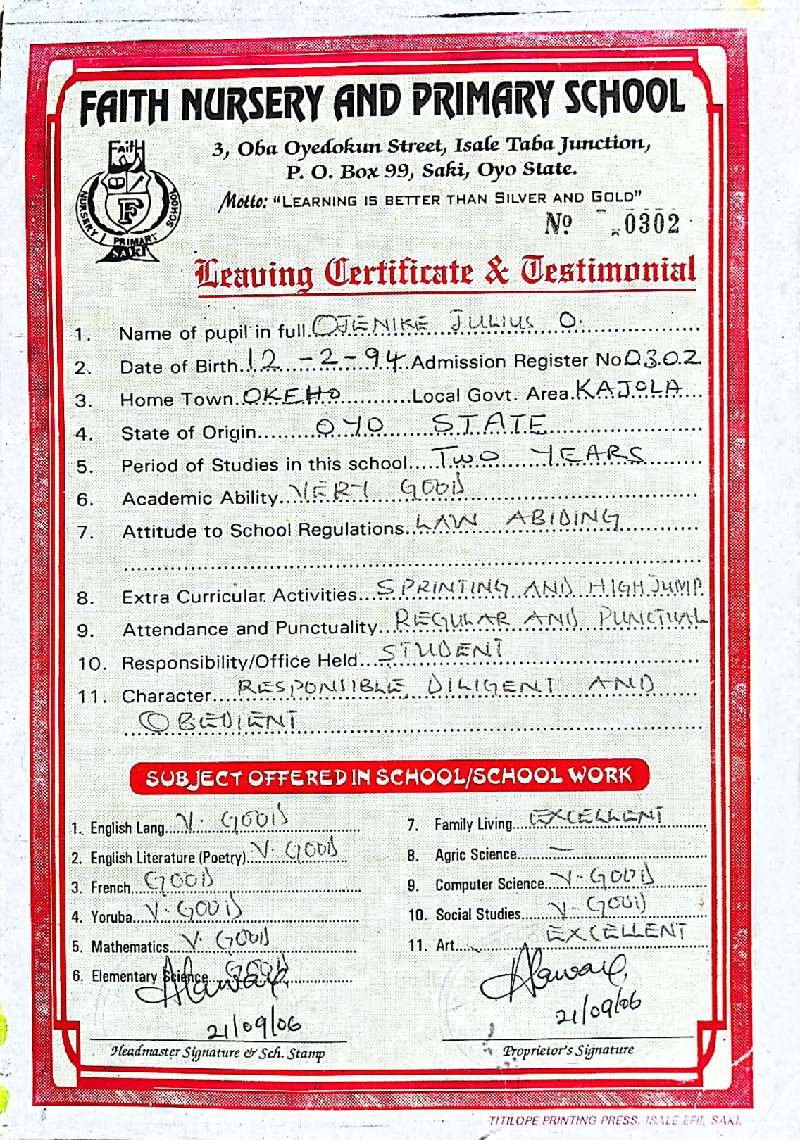 FAITH NURSERY AND PRIMARY SCHOOL
3, Oba Oyedokun Street, Isale Taba Junction,
P. O. Box 99, Saki, Oyo State.
Motto: "LEARNING IS BETTER THAN SILVER AND GOLD"
Faith
NURSERY PRIMARY SCHOOL
F
SAKI
Nº 0302
Leaving Certificate & Testimonial
1. Name of pupil in full OJENIKE JULIUS O.
2. Date of Birth 12-2-94 Admission Register No 0302
3. Home Town OKEHO Local Govt. Area KAJOLA
4. State of Origin OYO STATE
5. Period of Studies in this school TWO YEARS
6. Academic Ability VERY GOOD
7. Attitude to School Regulations LAW ABIDING
8. Extra Curricular Activities SPRINTING AND HIGH JUMP
9. Attendance and Punctuality REGULAR AND PUNCTUAL
10. Responsibility/Office Held STUDENT
11. Character RESPONSIBLE, DILIGENT AND
OBEDIENT
SUBJECT OFFERED IN SCHOOL/SCHOOL WORK
1. English Lang. V. GOOD
2. English Literature (Poetry) V. GOOD
3. French GOOD
4. Yoruba V. GOOD
5. Mathematics V. GOOD
6. Elementary Science GOOD
7. Family Living EXCELLENT
8. Agric Science —
9. Computer Science V. GOOD
10. Social Studies V. GOOD
11. Art EXCELLENT
21/09/06
Headmaster Signature & Sch. Stamp
21/09/06
Proprietor's Signature
TITILOPE PRINTING PRESS, ISALE EFII, SAKI.